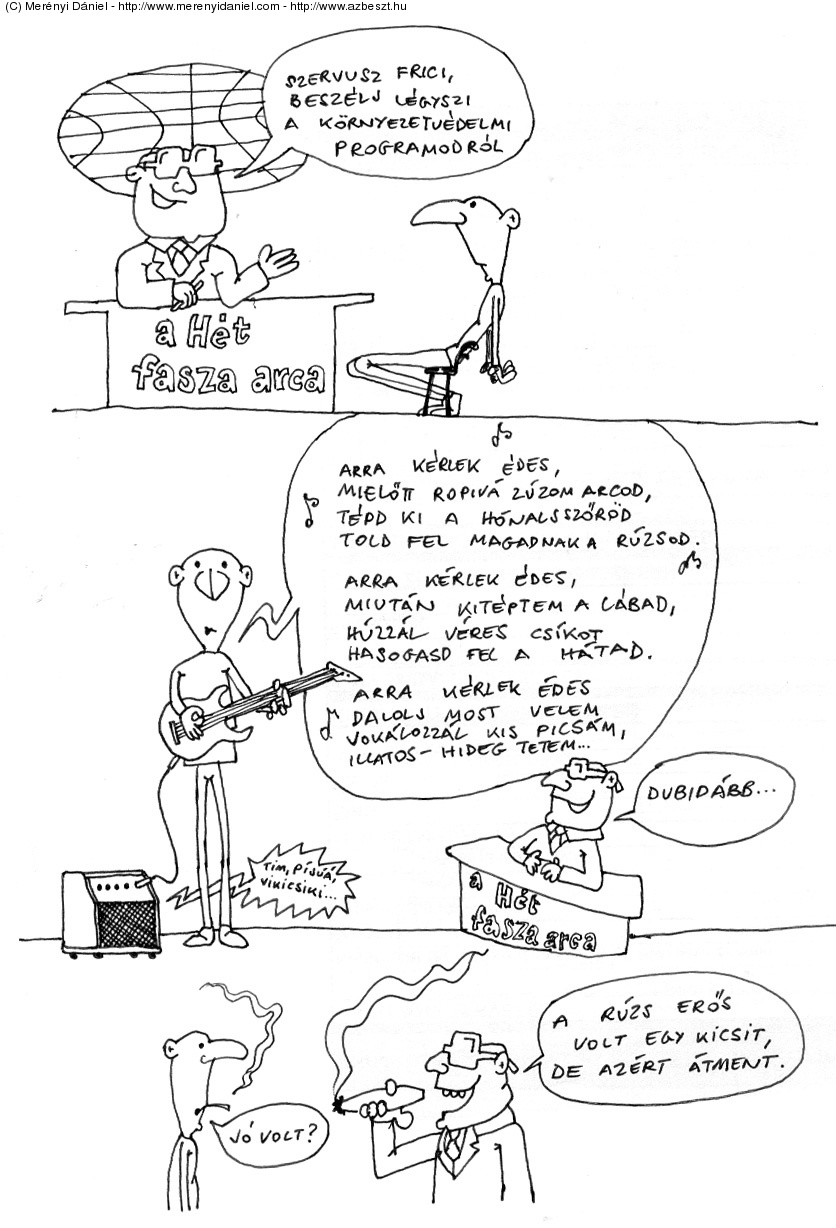 (C) Merényi Dániel - http://www.merenyidaniel.com - http://www.azbeszt.hu
SZERVUSZ FRICI,
BESZÉLJ LÉGYSZI
A KÖRNYEZETVÉDELMI
PROGRAMODRÓL
a Hét
fasza arca
ARRA KÉRLEK ÉDES,
MIELŐTT ROPIVÁ ZÚZOM ARCOD,
TÉPD KI A HÓNALJSZŐRÖD
TOLD FEL MAGADNAK A RÚZSOD.
ARRA KÉRLEK ÉDES,
MIUTÁN KITÉPTEM A LÁBAD,
HÚZZÁL VÉRES CSÍKOT
HASOGASD FEL A HÁTAD.
ARRA KÉRLEK ÉDES
DALOLJ MOST VELEM
VOKÁLOZZÁL KIS PICSÁM,
ILLATOS-HIDEG TETEM...
DUBIDÁBB...
TIM, PÍJÚÁ,
VIKICSIKI...
a Hét
fasza arca
JÓ VOLT?
A RÚZS ERŐS
VOLT EGY KICSIT,
DE AZÉRT ÁTMENT.